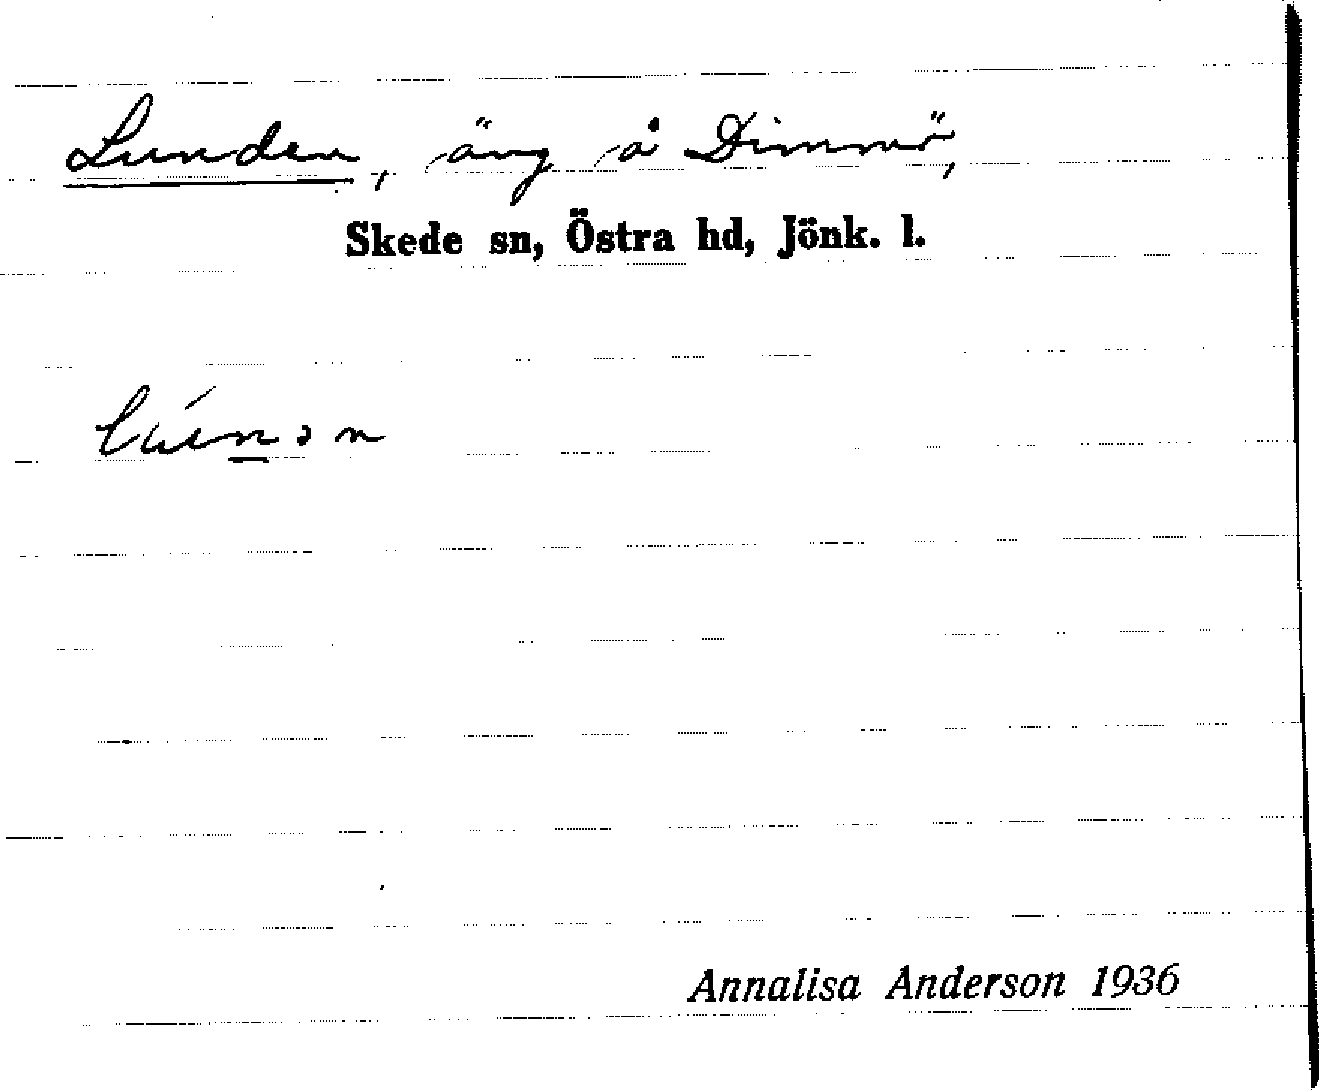 Lunden, äng å Dimmö,
Skede sn, Östra hd, Jönk. l.
Annalisa Anderson 1936